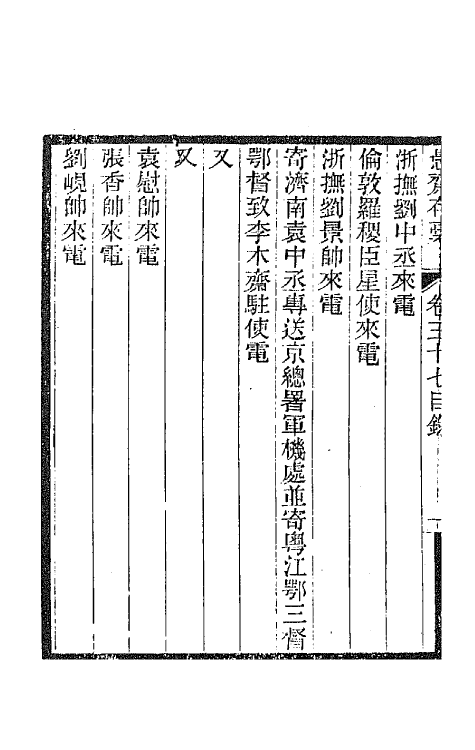 愚齋存稾 卷三十七目錄
浙撫劉中丞來電
倫敦羅稷臣星使來電
浙撫劉景帥來電
寄濟南袁中丞專送京總署軍機處並寄粵江鄂三督
鄂督致李木齋駐使電
又
又
袁慰帥來電
張香帥來電
劉峴帥來電